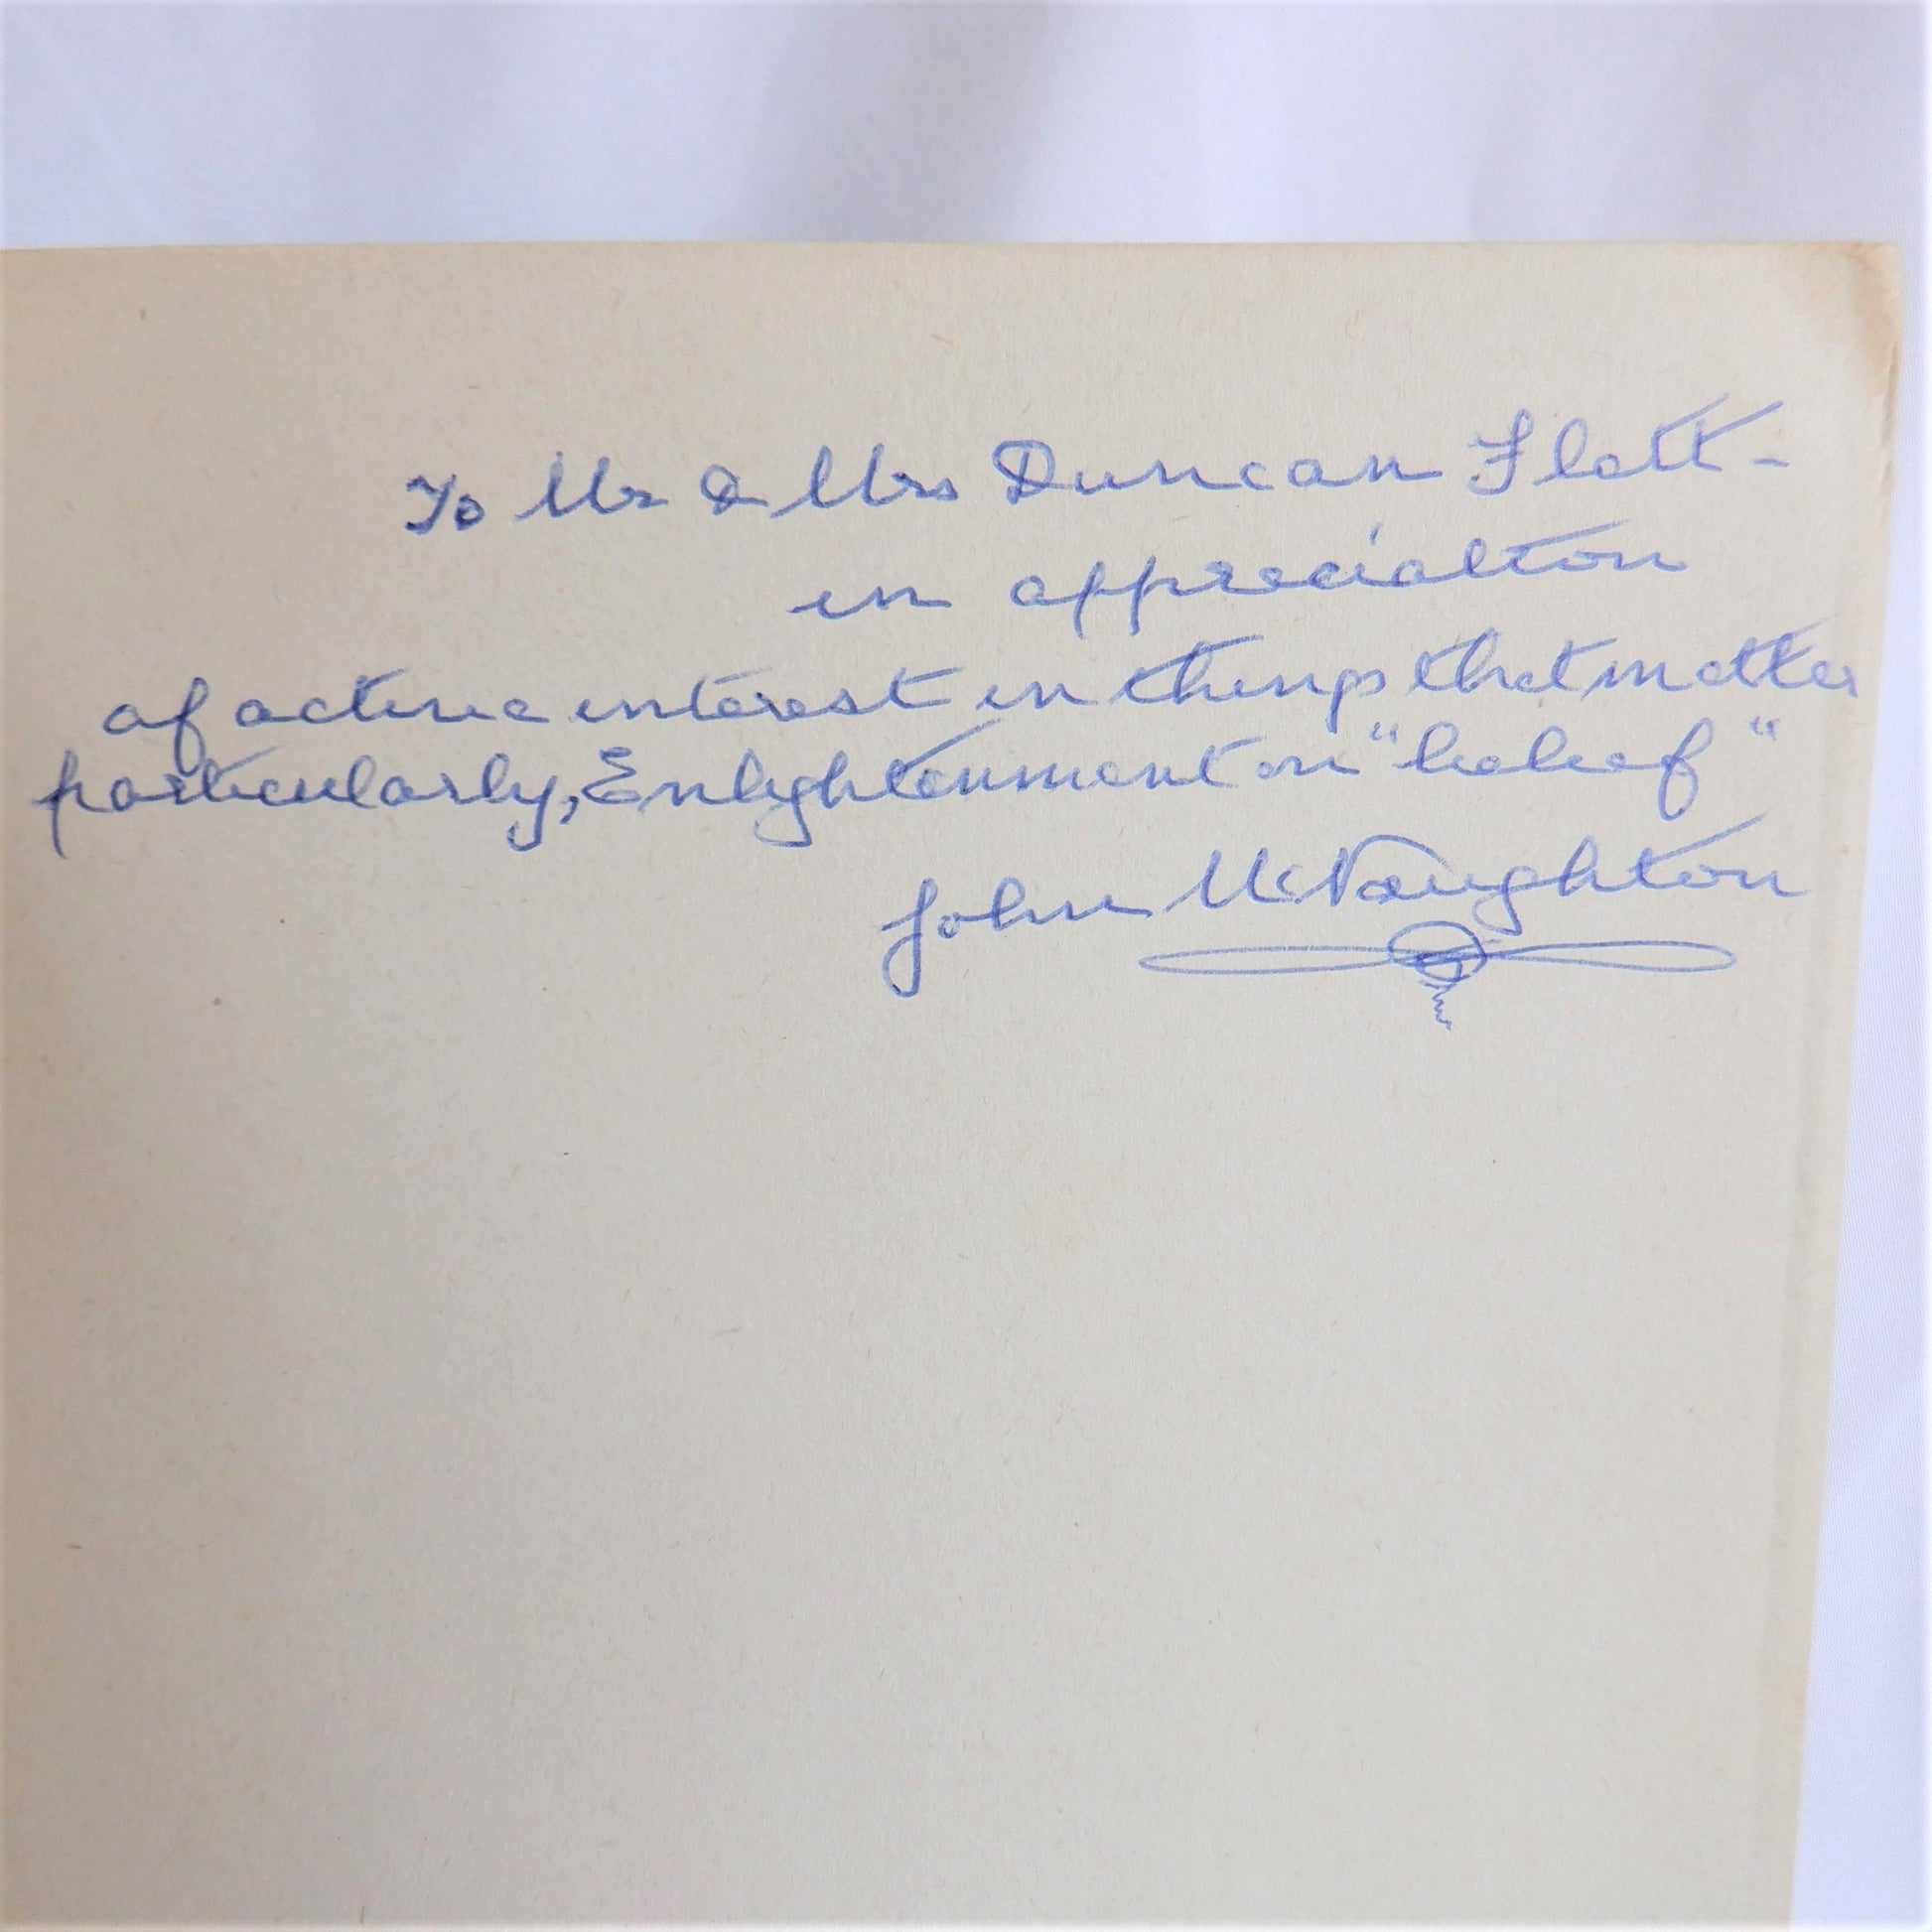 To Mr & Mrs Duncan Flatt -
in appreciation
of active interest in things that matter
particularly, Enlightenment on "belief"
John McNaughton